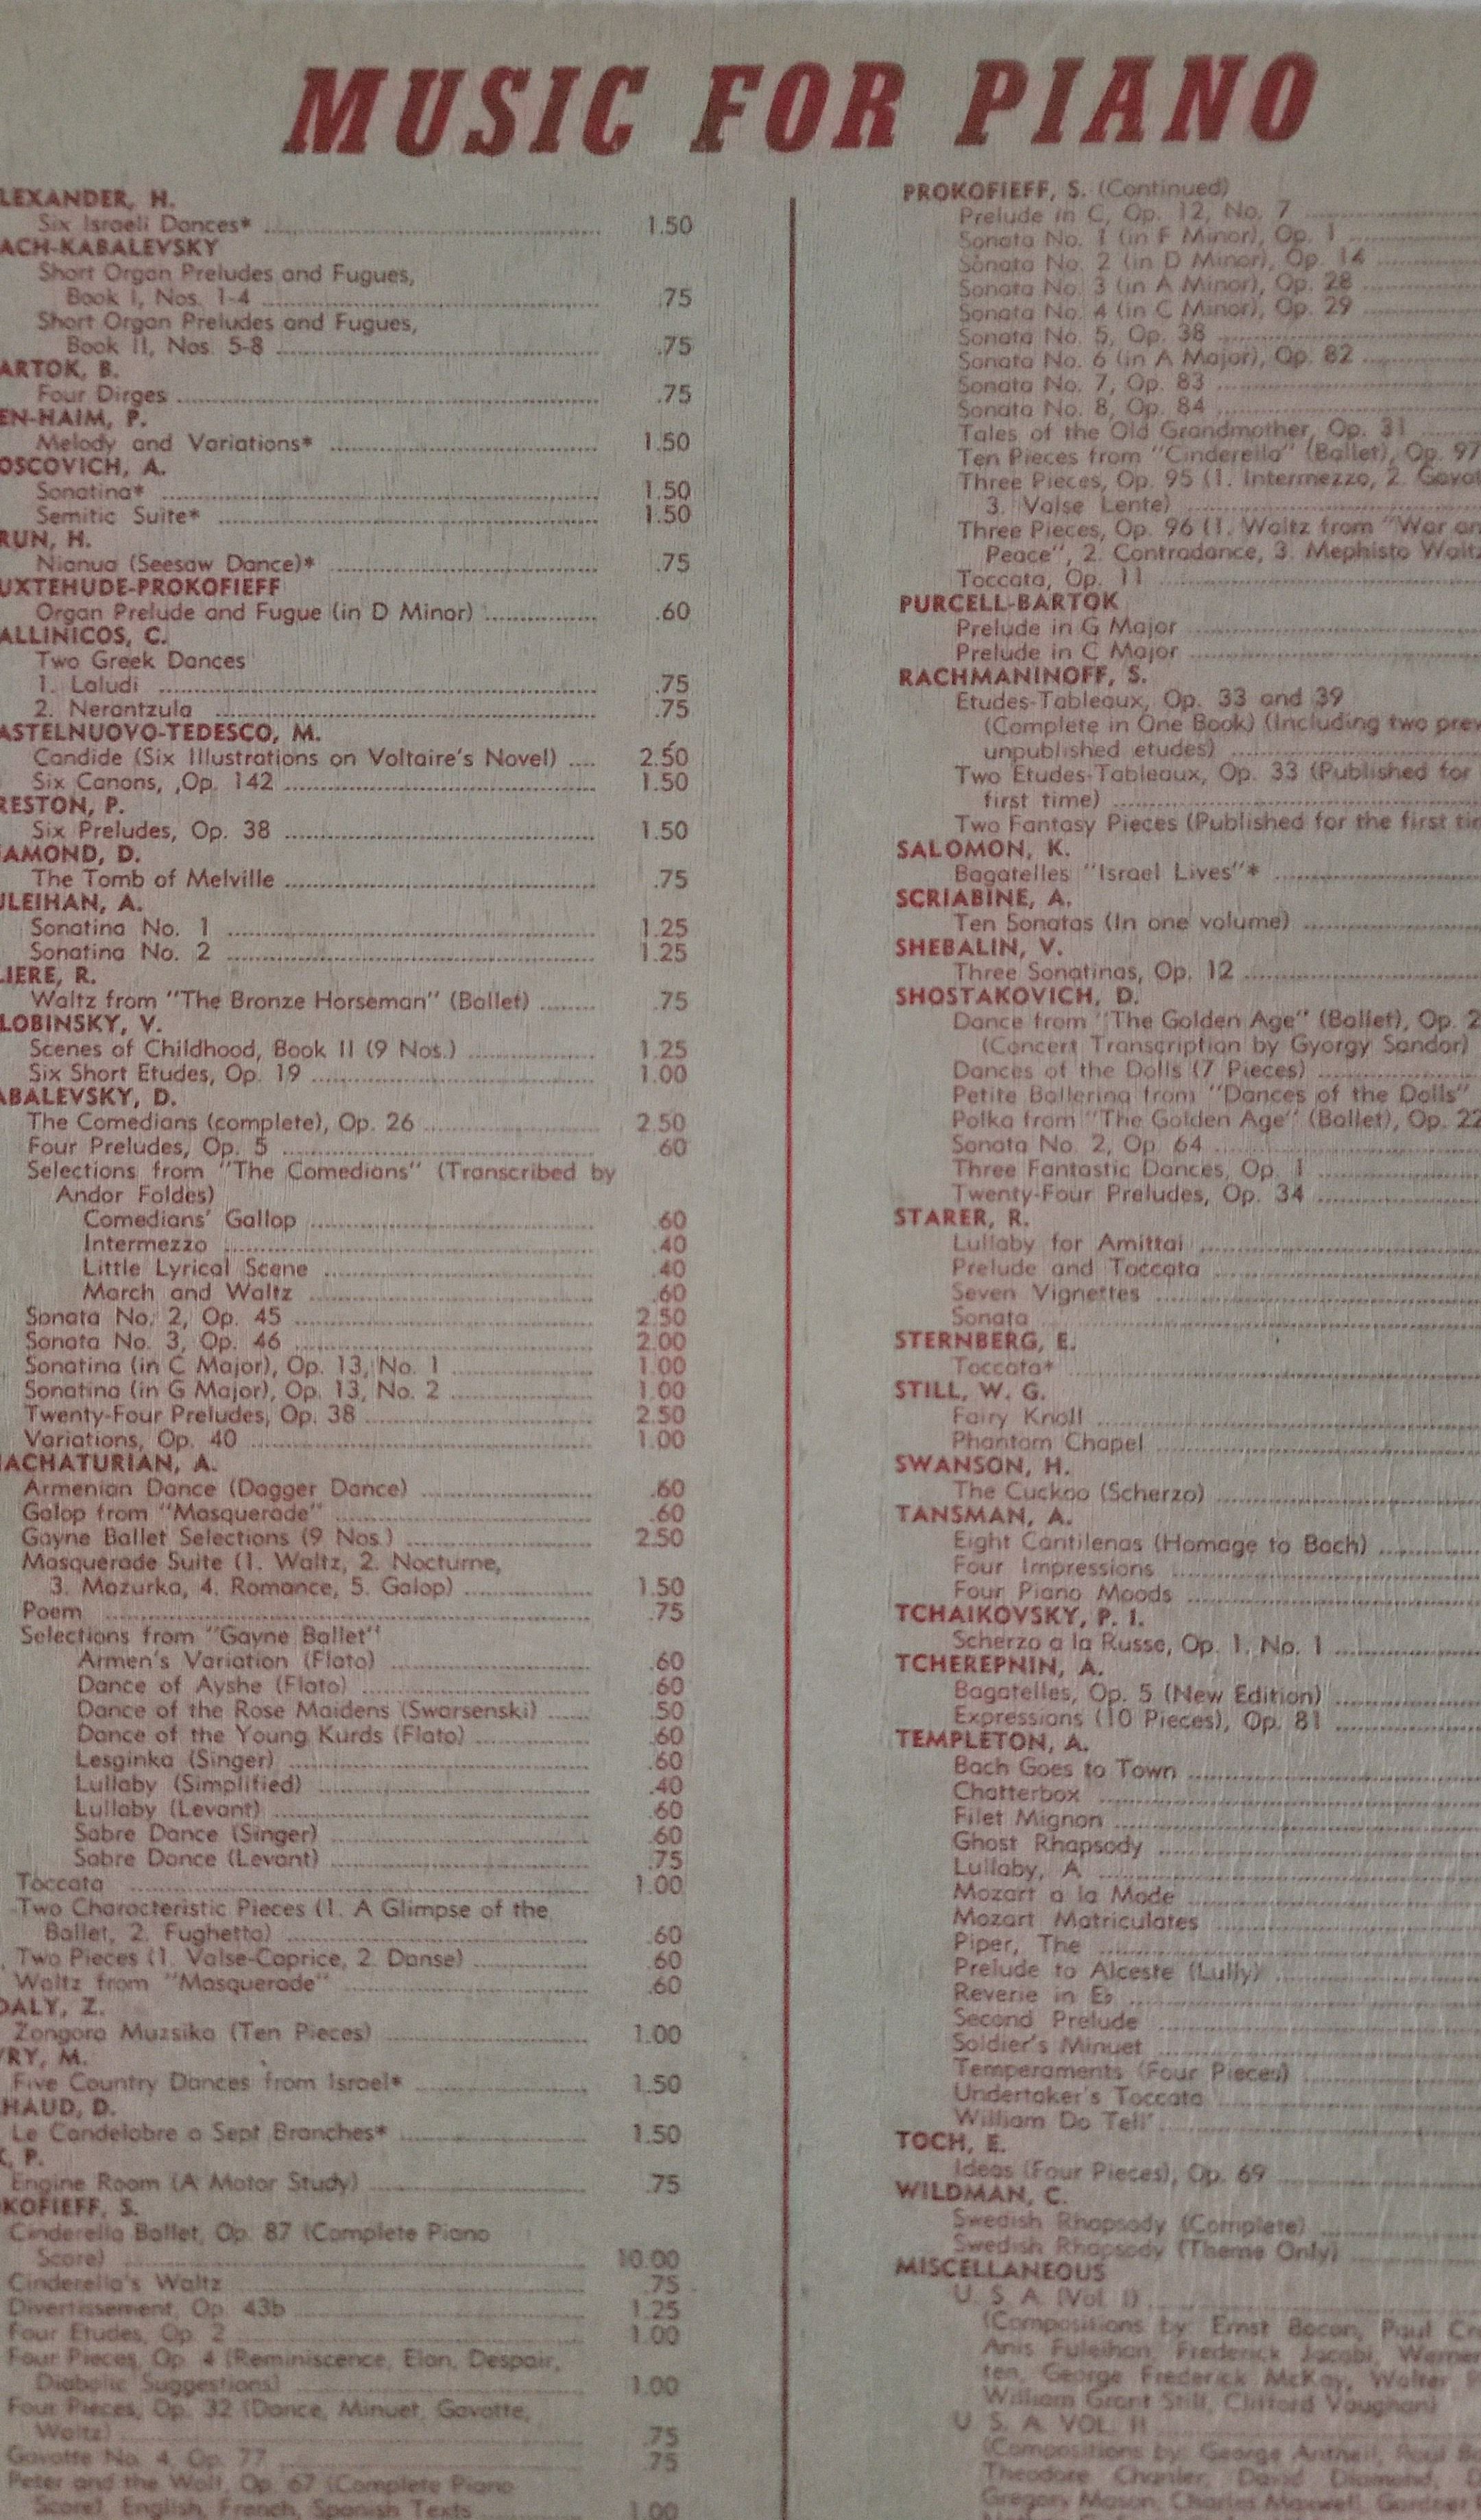 MUSIC FOR PIANO
LEXANDER, H.
Six Israeli Dances* 1.50
ACH-KABALEVSKY
Short Organ Preludes and Fugues,
Book I, Nos. 1-4 .75
Short Organ Preludes and Fugues,
Book II, Nos. 5-8 .75
ARTOK, B.
Four Dirges .75
EN-HAIM, P.
Melody and Variations* 1.50
OSCOVICH, A.
Sonatina* 1.50
Semitic Suite* 1.50
RUN, H.
Nianua (Seesaw Dance)* .75
UXTEHUDE-PROKOFIEFF
Organ Prelude and Fugue (in D Minor) .60
ALLINICOS, C.
Two Greek Dances
1. Laludi .75
2. Nerantzula .75
ASTELNUOVO-TEDESCO, M.
Candide (Six Illustrations on Voltaire's Novel) .... 2.50
Six Canons, ,Op. 142 1.50
RESTON, P.
Six Preludes, Op. 38 1.50
AMOND, D.
The Tomb of Melville .75
ULEIHAN, A.
Sonatina No. 1 1.25
Sonatina No. 2 1.25
LIERE, R.
Waltz from "The Bronze Horseman" (Ballet) .75
LOBINSKY, V.
Scenes of Childhood, Book II (9 Nos.) 1.25
Six Short Etudes, Op. 19 1.00
ABALEVSKY, D.
The Comedians (complete), Op. 26 2.50
Four Preludes, Op. 5 .60
Selections from "The Comedians" (Transcribed by
Andor Foldes)
Comedians' Gallop .60
Intermezzo .40
Little Lyrical Scene .40
March and Waltz .60
Sonata No. 2, Op. 45 2.50
Sonata No. 3, Op. 46 2.00
Sonatina (in C Major), Op. 13, No. 1 1.00
Sonatina (in G Major), Op. 13, No. 2 1.00
Twenty-Four Preludes, Op. 38 2.50
Variations, Op. 40 1.00
HACHATURIAN, A.
Armenian Dance (Dagger Dance) .60
Galop from "Masquerade" .60
Gayne Ballet Selections (9 Nos.) 2.50
Masquerade Suite (1. Waltz, 2. Nocturne,
3. Mazurka, 4. Romance, 5. Galop) 1.50
Poem .75
Selections from "Gayne Ballet"
Armen's Variation (Flato) .60
Dance of Ayshe (Flato) .60
Dance of the Rose Maidens (Swarsenski) .50
Dance of the Young Kurds (Flato) .60
Lesginka (Singer) .60
Lullaby (Simplified) .40
Lullaby (Levant) .60
Sabre Dance (Singer) .60
Sabre Dance (Levant) .75
Toccata 1.00
Two Characteristic Pieces (1. A Glimpse of the
Ballet, 2. Fughetta) .60
Two Pieces (1. Valse-Caprice, 2. Danse) .60
Waltz from "Masquerade" .60
DALY, Z.
Zongora Muzsika (Ten Pieces) 1.00
VRY, M.
Five Country Dances from Israel* 1.50
HAUD, D.
Le Candelabre a Sept Branches* 1.50
K, P.
Engine Room (A Motor Study) .75
KOFIEFF, S.
Cinderella Ballet, Op. 87 (Complete Piano
Score) 10.00
Cinderella's Waltz .75
Divertissement, Op. 43b 1.25
Four Etudes, Op. 2 1.00
Four Pieces, Op. 4 (Reminiscence, Elan, Despair,
Diabolic Suggestions) 1.00
Four Pieces, Op. 32 (Dance, Minuet, Gavotte,
Waltz) .75
Gavotte No. 4, Op. 77 .75
Peter and the Wolf, Op. 67 (Complete Piano
Score), English, French, Spanish Texts 1.00
PROKOFIEFF, S. (Continued)
Prelude in C, Op. 12, No. 7
Sonata No. 1 (in F Minor), Op. 1
Sonata No. 2 (in D Minor), Op. 14
Sonata No. 3 (in A Minor), Op. 28
Sonata No. 4 (in C Minor), Op. 29
Sonata No. 5, Op. 38
Sonata No. 6 (in A Major), Op. 82
Sonata No. 7, Op. 83
Sonata No. 8, Op. 84
Tales of the Old Grandmother, Op. 31
Ten Pieces from "Cinderella" (Ballet), Op. 97
Three Pieces, Op. 95 (1. Intermezzo, 2. Gavot
3. Valse Lente)
Three Pieces, Op. 96 (1. Waltz from "War an
Peace", 2. Contradance, 3. Mephisto Waltz
Toccata, Op. 11
PURCELL-BARTOK
Prelude in G Major
Prelude in C Major
RACHMANINOFF, S.
Etudes-Tableaux, Op. 33 and 39
(Complete in One Book) (Including two prev
unpublished etudes)
Two Etudes-Tableaux, Op. 33 (Published for
first time)
Two Fantasy Pieces (Published for the first tim
SALOMON, K.
Bagatelles "Israel Lives"*
SCRIABINE, A.
Ten Sonatas (In one volume)
SHEBALIN, V.
Three Sonatinas, Op. 12
SHOSTAKOVICH, D.
Dance from "The Golden Age" (Ballet), Op. 2
(Concert Transcription by Gyorgy Sandor)
Dances of the Dolls (7 Pieces)
Petite Ballerina from "Dances of the Dolls"
Polka from "The Golden Age" (Ballet), Op. 22
Sonata No. 2, Op. 64
Three Fantastic Dances, Op. 1
Twenty-Four Preludes, Op. 34
STARER, R.
Lullaby for Amittai
Prelude and Toccata
Seven Vignettes
Sonata
STERNBERG, E.
Toccata*
STILL, W. G.
Fairy Knoll
Phantom Chapel
SWANSON, H.
The Cuckoo (Scherzo)
TANSMAN, A.
Eight Cantilenas (Homage to Bach)
Four Impressions
Four Piano Moods
TCHAIKOVSKY, P. I.
Scherzo a la Russe, Op. 1, No. 1
TCHEREPNIN, A.
Bagatelles, Op. 5 (New Edition)
Expressions (10 Pieces), Op. 81
TEMPLETON, A.
Bach Goes to Town
Chatterbox
Filet Mignon
Ghost Rhapsody
Lullaby, A
Mozart a la Mode
Mozart Matriculates
Piper, The
Prelude to Alceste (Lully)
Reverie in E♭
Second Prelude
Soldier's Minuet
Temperaments (Four Pieces)
Undertaker's Toccata
William Do Tell'
TOCH, E.
Ideas (Four Pieces), Op. 69
WILDMAN, C.
Swedish Rhapsody (Complete)
Swedish Rhapsody (Theme Only)
MISCELLANEOUS
U. S. A. (Vol. I)
(Compositions by: Ernst Bacon, Paul Cr
Anis Fuleihan, Frederick Jacobi, Werner
ten, George Frederick McKay, Walter
William Grant Still, Clifford Vaughan)
U. S. A. VOL. II
(Compositions by: George Antheil, Paul B
Theodore Chanler, David Diamond,
Gregory Mason, Charles Maxwell, Gardner